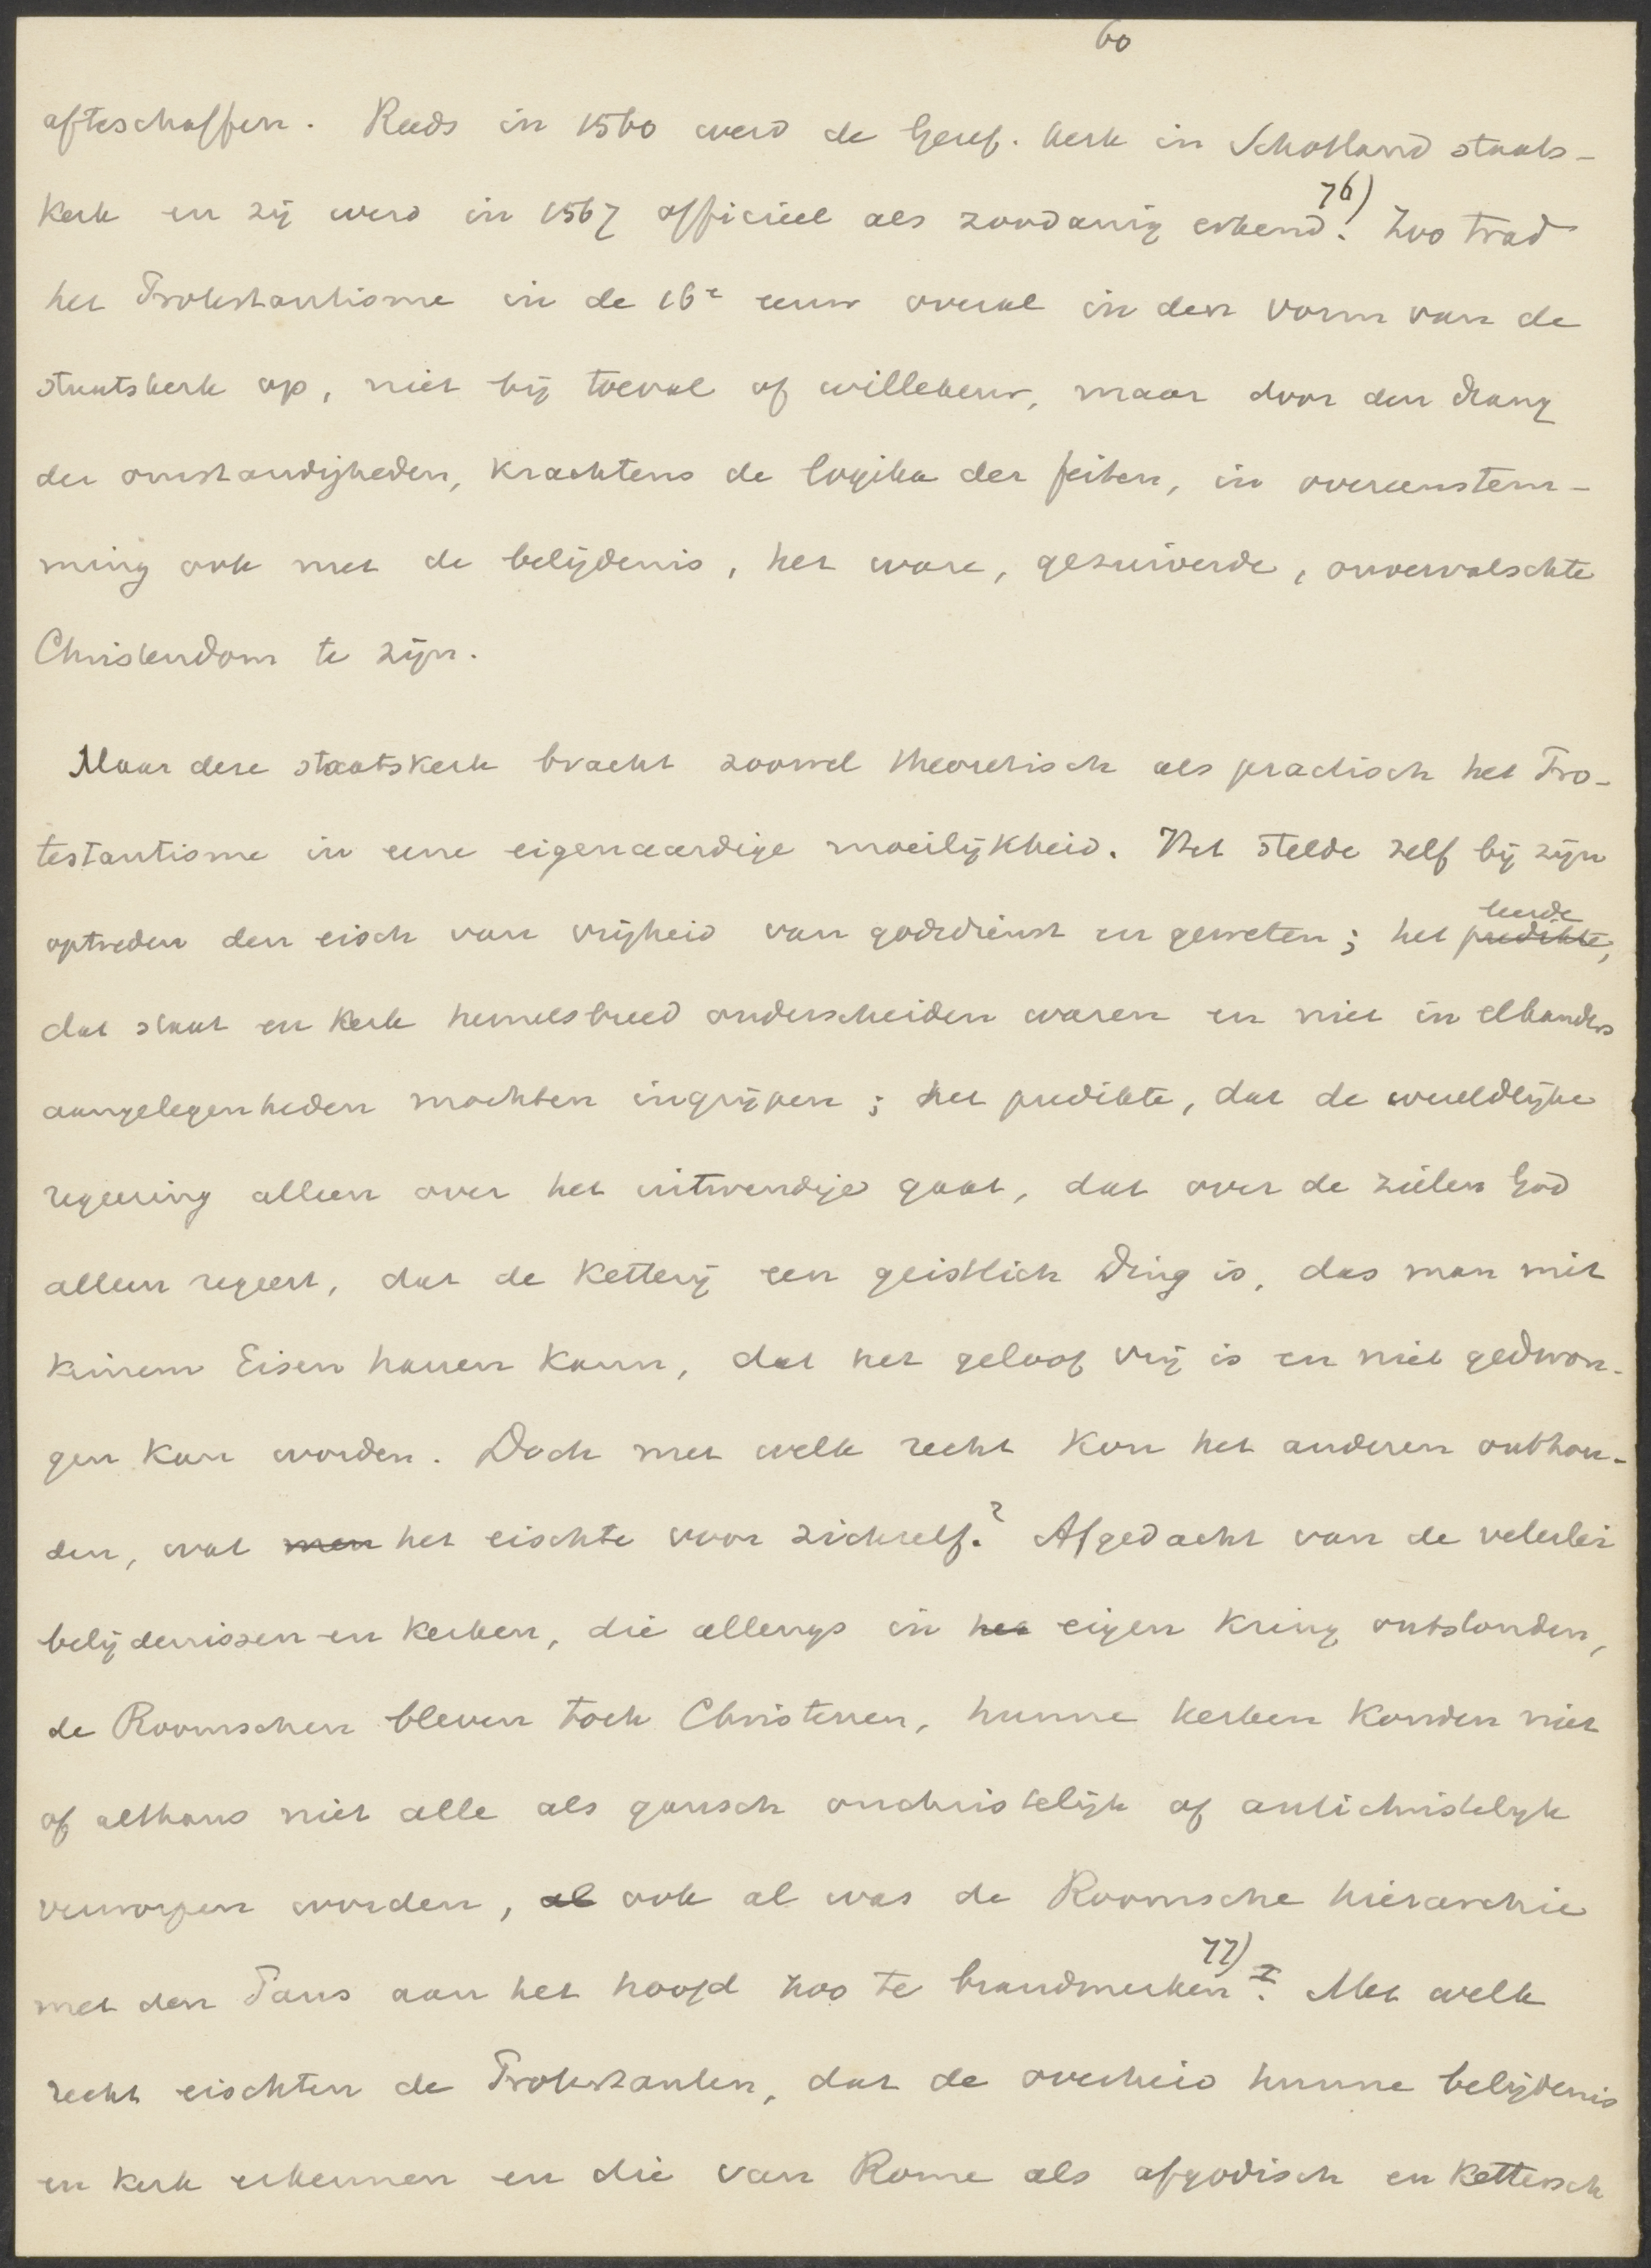 60
afteschaffen. Reeds in 1560 werd de Geref. kerk in Schotland staats-
kerk en zij werd in 1567 officieel als zoodanig erkend. 76) Zoo trad
het Protestantisme in de 16e eeuw overal in den vorm van de
staatskerk op, niet bij toeval of willekeur, maar door den drang
der omstandigheden, krachtens de logika der feiten, in overeenstem-
ming ook met de belijdenis, het ware, gezuiverde, onvervalschte
Christendom te zijn.
Maar deze staatskerk bracht zoowel theoretisch als practisch het Pro-
testantisme in eene eigenaardige moeilijkheid. Het stelde zelf bij zijn
optreden den eisch van vrijheid van godsdienst en geweten; het predikte, leerde
dat staat en kerk hemelsbreed onderscheiden waren en niet in elkanders
aangelegenheden mochten ingrijpen; het predikte, dat de wereldlijke
regeering alleen over het uitwendige gaat, dat over de zielen God
alleen regeert, dat de ketterij een geistlich Ding is, das man mit
keinem Eisen hauen kann, dat het geloof vrij is en niet gedwon-
gen kan worden. Doch met welk recht kon het anderen onthou-
den, wat men het eischte voor zichzelf? Afgedacht van de velerlei
belijdenissen en kerken, die allengs in het eigen kring ontstonden,
de Roomschen bleven toch Christenen, hunne kerken konden niet
of althans niet alle als gansch onchristelijk of antichristelijk
verworpen worden, al ook al was de Roomsche hierarchie
met den Paus aan het hoofd zoo te brandmerken. 77) Met welk
recht eischten de Protestanten, dat de overheid hunne belijdenis
en kerk erkennen en die van Rome als afgodisch en kettersch